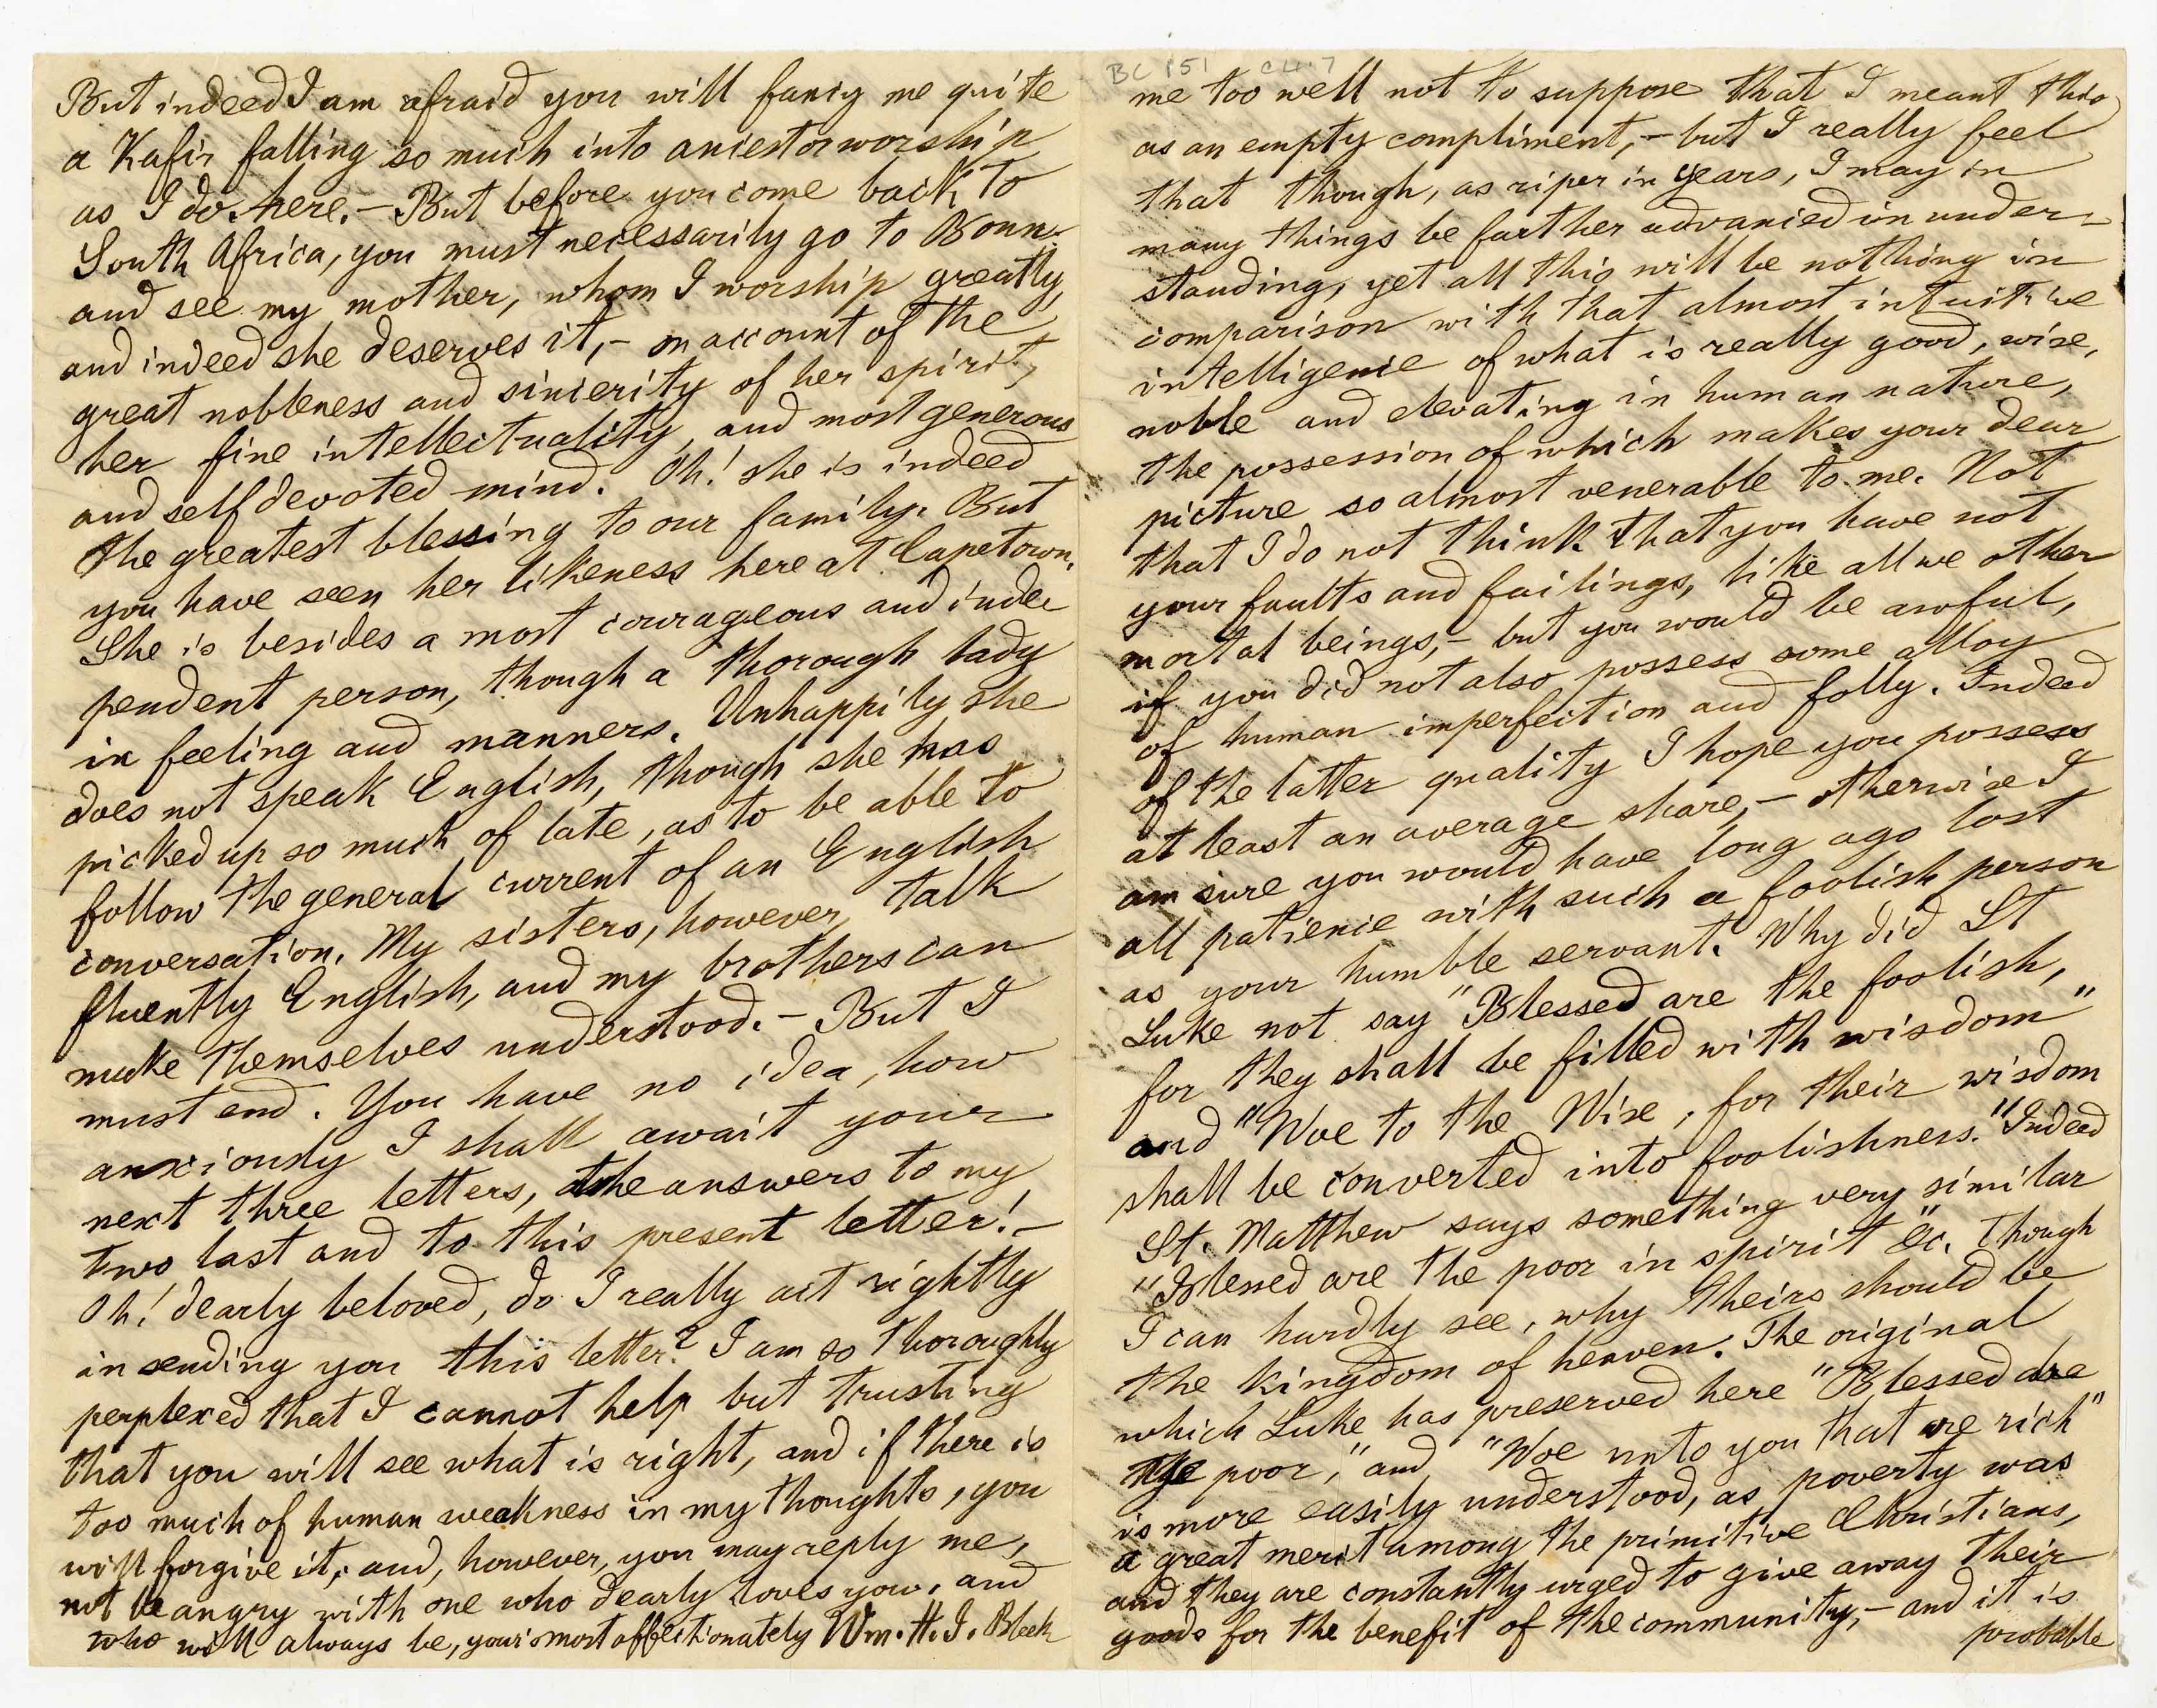 But indeed I am afraid you will fancy me quite
a Kafir falling so much into ancestorworship
as I do here. – But before you come back to
South Africa, you must necessarily go to Bonn
and see my mother, whom I worship greatly,
and indeed she deserves it, – on account of the
great nobleness and sincerity of her spirit,
her fine intellectuality, and most generous
and selfdevoted mind. Oh! she is indeed
the greatest blessing to our family. But
you have seen her likeness here at Capetown.
She is besides a most courageous and inde
pendent person, though a thorough lady
in feeling and manners. Unhappily she
does not speak English, though she has
picked up so much of late, as to be able to
follow the general current of an English
conversation. My sisters, however, talk
fluently English, and my brothers can
make themselves understood. – But I
must end. You have no idea, how
anxiously I shall await your
next three letters, the answers to my
two last and to this present letter! –
Oh! dearly beloved, do I really act rightly
in sending you this letter? I am so thoroughly
perplexed that I cannot help but trusting
that you will see what is right, and if there is
too much of human weakness in my thoughts, you
will forgive it, and, however, you may reply me,
not be angry with one who dearly loves you, and
who will always be, yours most affectionately Wm. H. I. Bleek
BC 151 C4.7
me too well not to suppose that I meant this
as an empty compliment, – but I really feel
that though, as riper in years, I may in
many things be farther advanced in under-
standing, yet all this will be nothing in
comparison with that almost intuitive
intelligence of what is really good, wise,
noble and elevating in human nature,
the possession of which makes your dear
picture so almost venerable to me. Not
that I do not think that you have not
your faults and failings, like all we other
mortal beings, – but you would be awful,
if you did not also possess some alloy
of human imperfection and folly. Indeed
of the latter quality I hope you possess
at least an average share, – otherwise I
am sure you would have long ago lost
all patience with such a foolish person
as your humble servant. Why did St
Luke not say "Blessed are the foolish,
for they shall be filled with wisdom"
and "Woe to the Wise, for their wisdom
shall be converted into foolishness." Indeed
St. Matthew says something very similar
"Blessed are the poor in spirit" &c. though
I can hardly see, why theirs should be
the kingdom of heaven. The original
which Luke has preserved here "Blessed are
the poor," and "Woe unto you that are rich"
is more easily understood, as poverty was
a great merit among the primitive Christians,
and they are constantly urged to give away their
goods for the benefit of the community, – and it is
probable